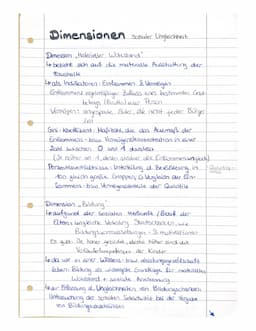 Dimensionen sozialer Ungleichheit
Dimension „Materieller Wohlstand"
↳ bezieht sich auf die materielle Ausstattung der
Haushalte
↳ als Indikatoren: Einkommen & Vermögen
Einkommen: regelmäßiger Zufluss eines bestimmten Geld-
betrags (Brutto) einer Person
Vermögen: angesparte Güter, die nicht jeder Bürger
hat
Gini-Koeffizient: Maßzahl, die das Ausmaß der
Einkommens- bzw. Vermögenskonzentration in einer
Zahl zwischen 0 und 1 darstellt
(Je näher an 1, desto größer die Einkommensungleich)
Perzentilverhältnisse: Unterteilung d. Bevölkerung in
100 gleich große Gruppen, & Vergleich der Ein-
kommens- bzw. Vermögensanteile der Quintile
Dimension „Bildung"
↳ aufgrund der sozialen Herkunft / Beruf der
Eltern ungleiche Verteilung
Bildungsvoraussetzungen
Es gilt: Je höher gebildet, desto höher sind die
der Kinder
↳ da wir in einer Wissens- bzw. gesellschaft
leben: Bildung als wichtigste Grundlage für materiellen
Wohlstand + soziale Anerkennung
↳ zur Erfassung d. Ungleichheiten von Bildungschancen:
Untersuchung der sozialen Selektivität bei der Vergabe
von Bildungsabschlüssen